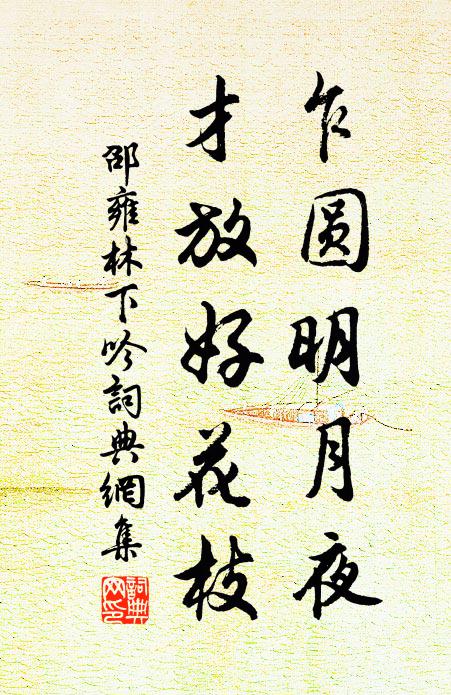 乍圆明月夜
才放好花枝
邵雍林下吟詞典網集
詞典
网印